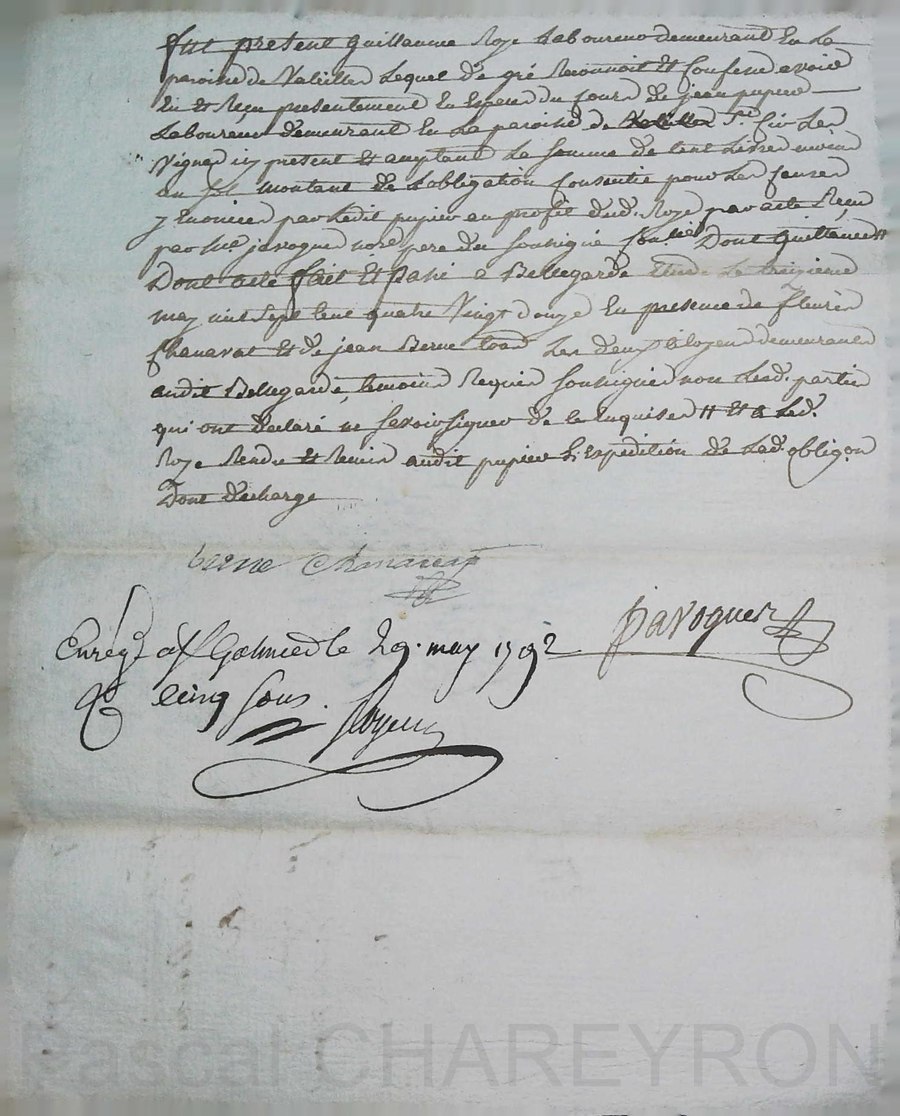 fut present Guillaume Roze Laboureur demeurant En La
paroisse de Valeille Lequel de gré Reconnoit Et Confesse avoir
Eu Et Reçu presentement En Especes du Cours de jean pupier
Laboureur demeurant En La paroisse de St Cir Les
Vignes icy present Et acceptant La somme de Cent Livres
montant de Lobligation Consentie pour Les Causes
y Enoncées par Ledit pupier au profit dud. Roze par acte Reçu
par Me javogues no.re pere du soussigné Dont quittance #
Dont acte fait Et passé a Bellegarde Etude Le treizieme
may mil sept cent quatre Vingt douze En presence de fleurie
Chanavat Et de jean Berne Les deux Citoyens demeurants
audit Bellegarde, temoins Requis soussignés non Lesd. parties
qui ont declaré ne savoir signer de ce Enquises # Et a Led.
Roze Rendu Et Remis audit pupier L'Expedition de Lad. obligon
Dont decharge
berne Chanavat
Javogues
Enrégé a St Galmier le 29. may 1792
R cinq sous.
Pascal CHAREYRON